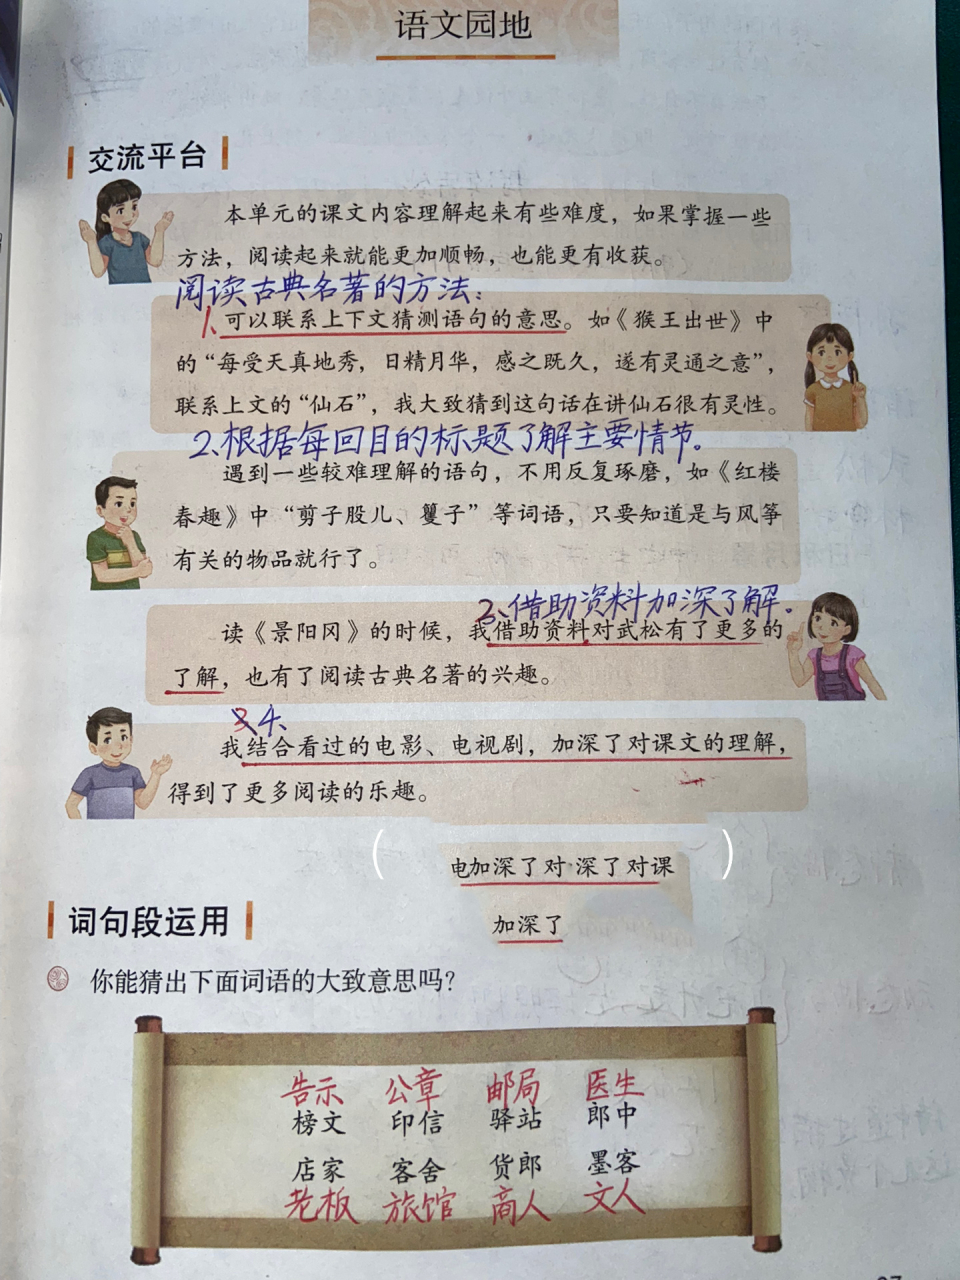 语文园地
交流平台
本单元的课文内容理解起来有些难度，如果掌握一些
方法，阅读起来就能更加顺畅，也能更有收获。
阅读古典名著的方法：
1、可以联系上下文猜测语句的意思。如《猴王出世》中
的“每受天真地秀，日精月华，感之既久，遂有灵通之意”，
联系上文的“仙石”，我大致猜到这句话在讲仙石很有灵性。
2、根据每回目的标题了解主要情节。
遇到一些较难理解的语句，不用反复琢磨，如《红楼
春趣》中“剪子股儿、籰子”等词语，只要知道是与风筝
有关的物品就行了。
2、借助资料加深了解。
读《景阳冈》的时候，我借助资料对武松有了更多的
了解，也有了阅读古典名著的兴趣。
3 4、
我结合看过的电影、电视剧，加深了对课文的理解，
得到了更多阅读的乐趣。
（ ）
电加深了对 深了对课
加深了
词句段运用
你能猜出下面词语的大致意思吗？
告示 公章 邮局 医生
榜文 印信 驿站 郎中
店家 客舍 货郎 墨客
老板 旅馆 商人 文人